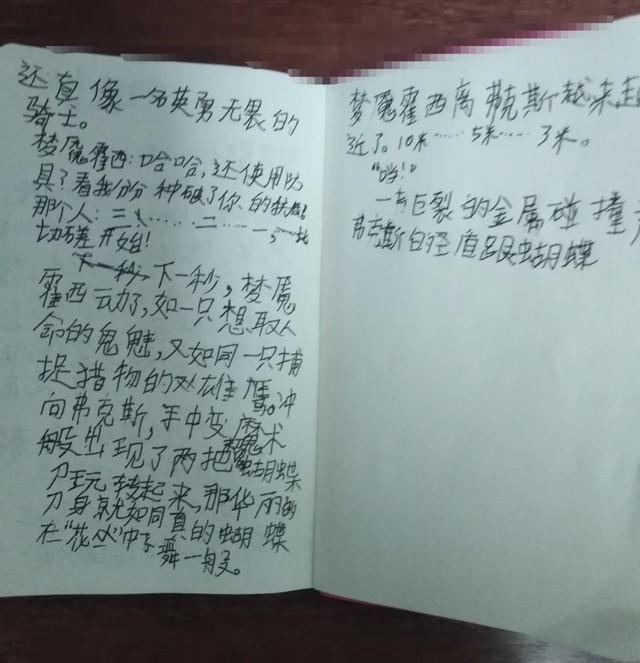 还真像一名英勇无畏的
骑士。
梦魔霍西:哈哈,还使用防
具?看我分分种破了你的
那个人:三、……二……一,
切磋开始!
下一秒,梦魔
霍西动了,如一只想取人
命的鬼魅,又如同一只捕
捉猎物的雄鹰。冲
向弗克斯,手中变魔术
般出现了两把蝴蝶
刀玩转起来,那华丽的
刀身就如同真的蝴蝶
在“花丛”中飞舞一般。
梦魔霍西离弗克斯越来越
近了。10米……5米……3米。
“当!”
一声巨裂的金属碰撞
弗克斯的圣盾跟蝴蝶